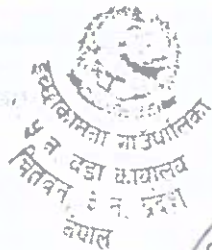 इच्छाकामना गाउँपालिका
५ नं वडा कार्यालय
चितवन, ३ नं. प्रदेश
नेपाल